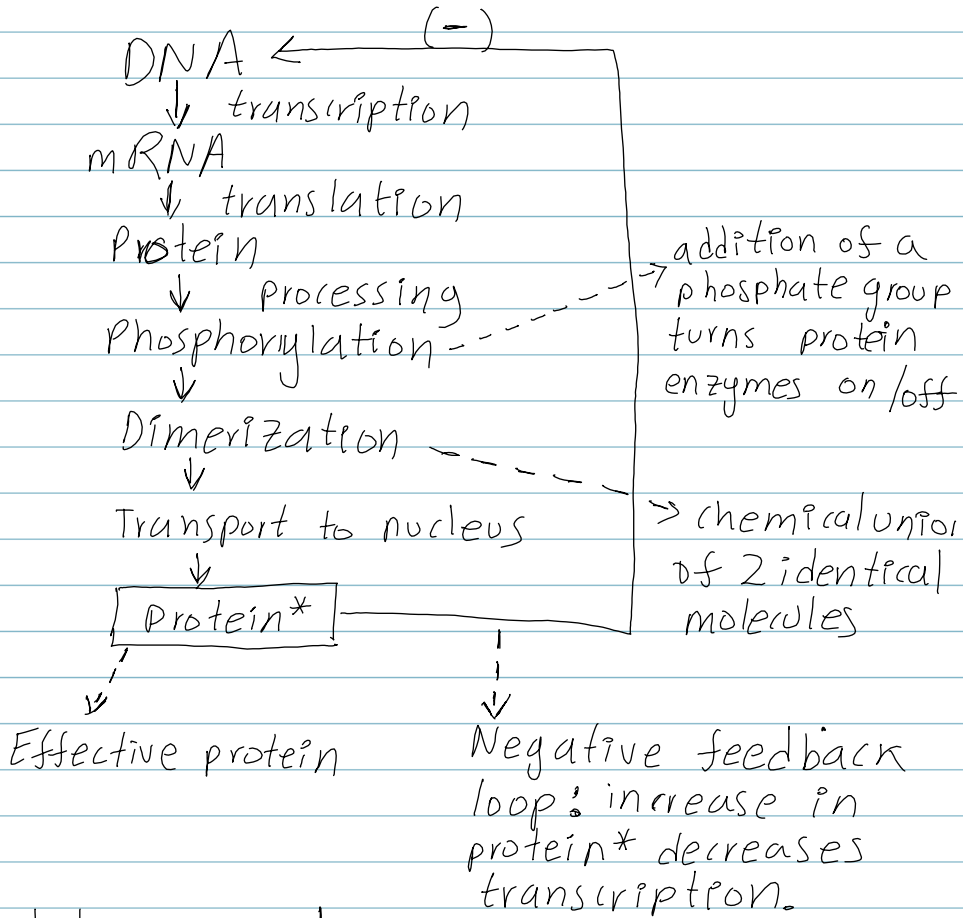 (-)
DNA
transcription
mRNA
translation
Protein
processing
Phosphorylation
Dimerization
Transport to nucleus
Protein*
addition of a
phosphate group
turns protein
enzymes on/off
chemical union
of 2 identical
molecules
Effective protein
Negative feedback
loop: increase in
protein* decreases
transcription.